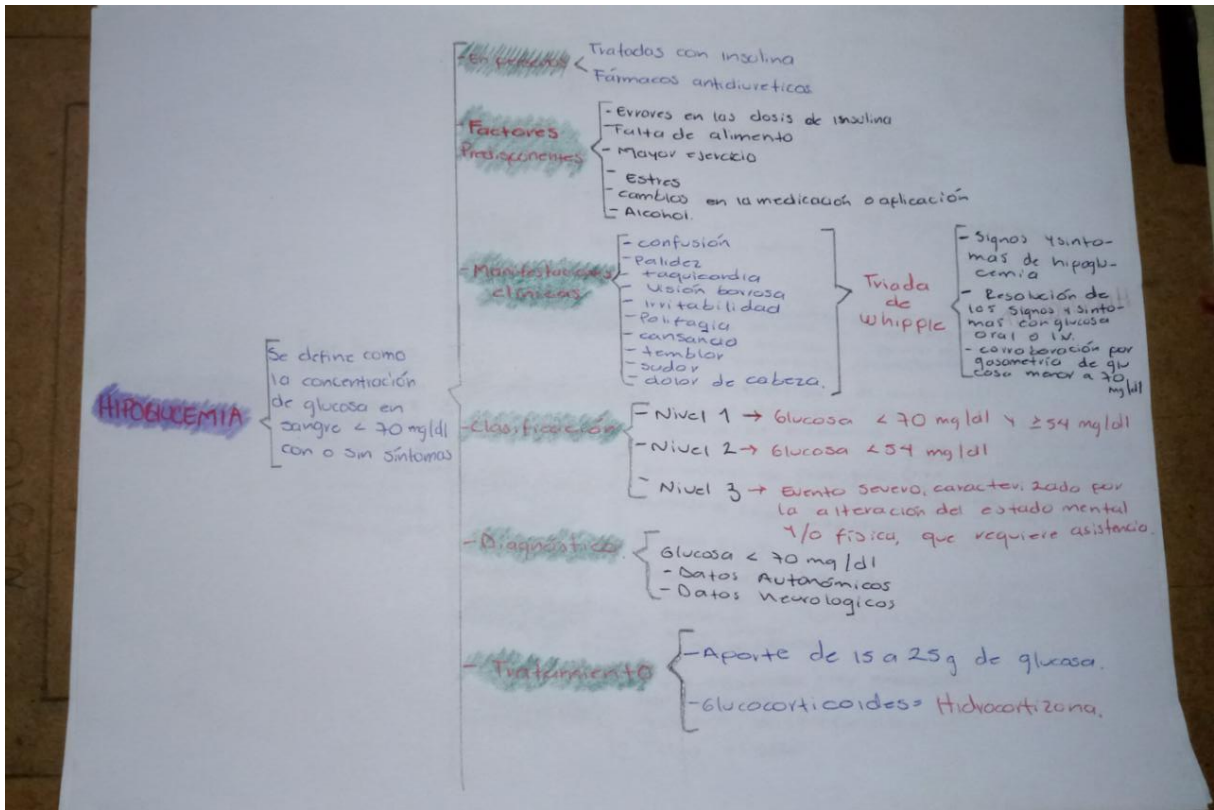 HIPOGLUCEMIA
Se define como
la concentración
de glucosa en
sangre < 70 mg/dl
con o sin síntomas
Tratadas con insulina
Fármacos antidiureticos
- Factores
Predisponentes
- Errores en las dosis de insulina
Falta de alimento
- Mayor ejercicio
- Estres
- cambios en la medicación o aplicación
- Alcohol.
- Manifestaciones
clínicas
- confusión
- Palidez
- taquicardia
- Visión borrosa
- Irritabilidad
- Polifagia
- cansancio
- temblor
- sudor
- dolor de cabeza.
Triada
de
Whipple
- Signos y sinto-
mas de hipoglu-
cemia
- Resolución de
los signos y sinto-
mas con glucosa
oral o I.V.
- corroboración por
gasometría de glu
cosa menor a 70
mg/dl
- Clasificación
- Nivel 1 → Glucosa < 70 mg/dl y ≥54 mg/dl
- Nivel 2 → Glucosa <54 mg/dl
- Nivel 3 → Evento severo, caracterizado por
la alteración del estado mental
y/o física, que requiere asistencia.
- Diagnóstico
Glucosa < 70 mg/dl
- Datos Autonómicos
- Datos Neurologicos
- Tratamiento
- Aporte de 15 a 25g de glucosa.
- Glucocorticoides= Hidrocortizona.